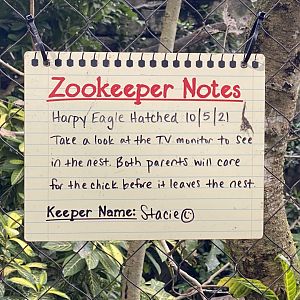 Zookeeper Notes
Harpy Eagle Hatched 10/5/21
Take a look at the TV monitor to see
in the nest. Both parents will care
for the chick before it leaves the nest.
Keeper Name: Stacie